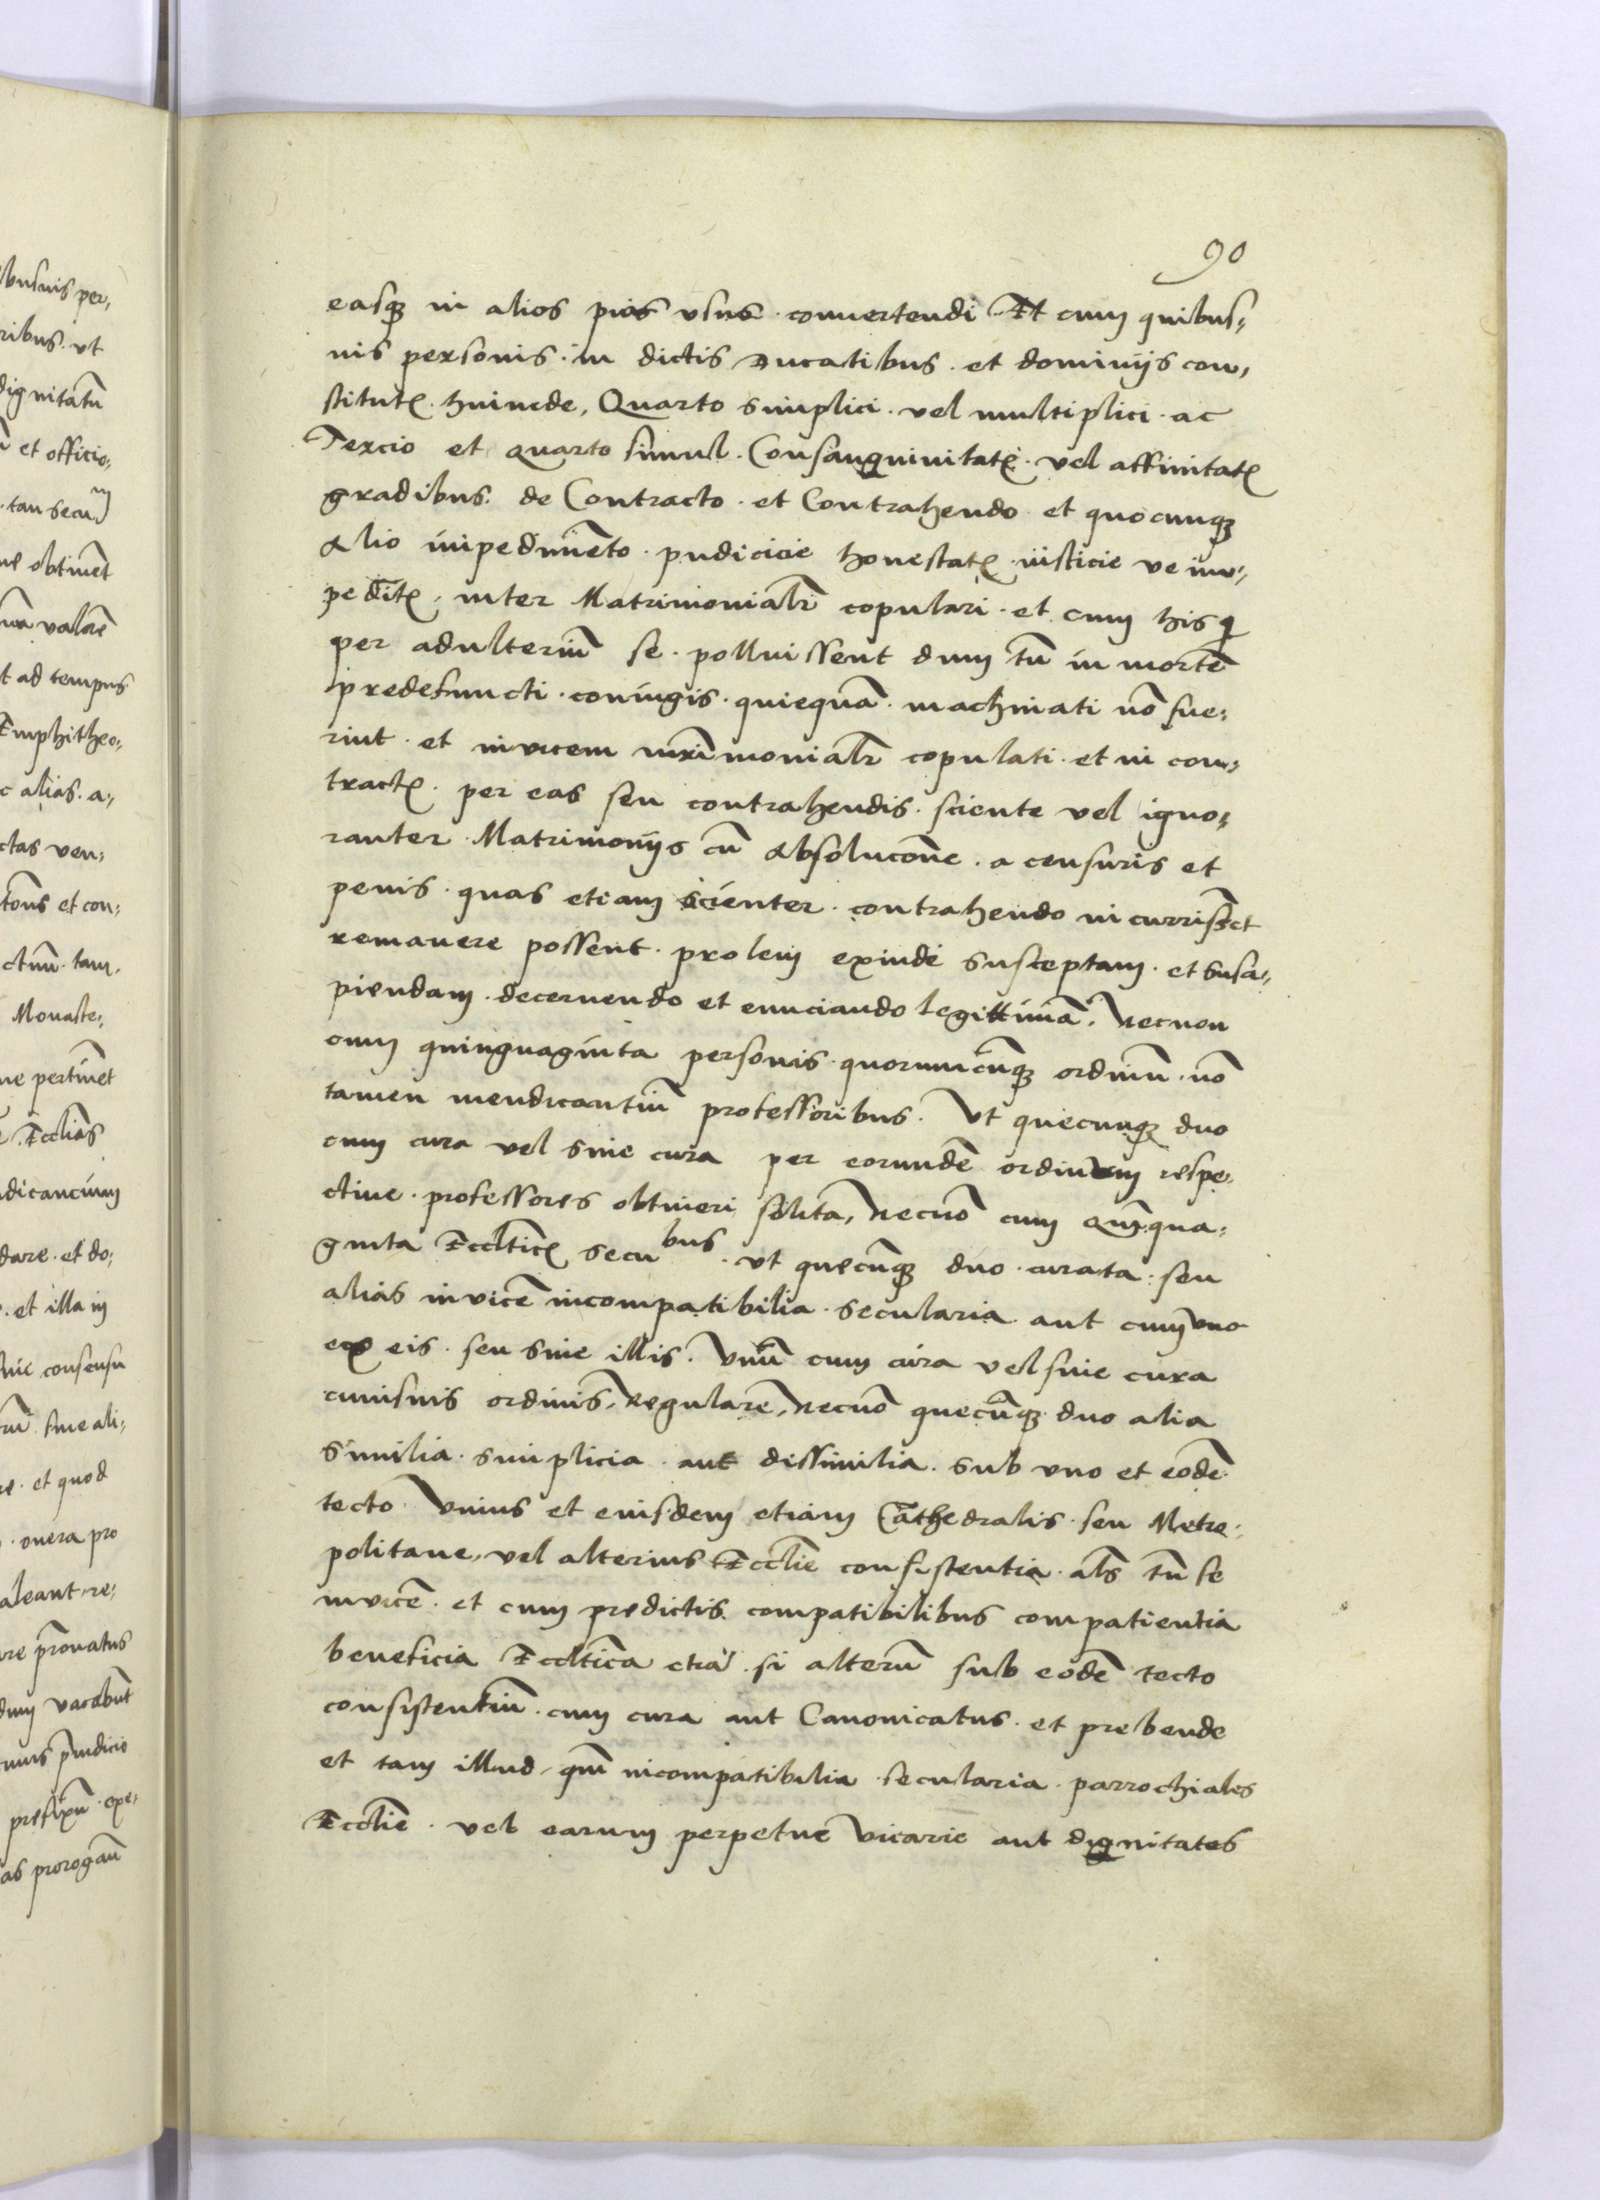 90
easq3 in alios pios vsus · conuertendi Et cum quibus⸗
uis personis · in dictis Ducatibus · et dominijs con⸗
stitutꝭ · huiucde, Quarto simplici · vel multiplici · ac
Tercio et quarto simul · Consanguinitatꝭ · vel affinitatꝭ
gradibus · de Contracto · et Contrahendo et quocunq3
Alio impedimēto · pudicicie honestatꝭ · iusticie ve im⸗
peditꝭ, inter Matrimonialr̄ copulari · et cum his q
per adulteriū se · polluissent dum tn̄ in mortē
predefuncti · coniugis · quicquā · machinati nō fue⸗
rint · et inuicem mr̄imonialr̄ copulati · et in con⸗
tractꝭ · per eas seu contrahendis · sciente vel igno⸗
ranter · Matrimonijs cū Absolucōne · a censuris et
penis · quas etiam scienter · contrahendo incurrissēt
remanere possent · prolem exinde susceptam · et susci⸗
piendam · decernendo et enunciando legittimā · Necnon
cum quinquaginta personis · quorumcūq3 ordinū · nō
tamen mendicantiū professoribus · Vt quecunq3 duo
cum cura vel sine cura per eorundē ordinum respe⸗
ctiue · professores obtineri solita, Necnō cum quinqua⸗
ginta Eccl̄ticꝭ secu^bus · vt quecūq3 duo · curata : seu
alias inuicē incompatibilia · secularia aut cum vno
ex eis · seu sine illis · Vnū cum cura vel sine cura
cuiusuis ordinis, Regularē, Necnō quecūq3 duo alia
similia · simplicia · aut dissimilia · sub vno et eodē
tecto Vnius et eiusdem etiam Cathedralis · seu Metro⸗
politane, vel alterius Eccl̄ie consistentia · als̄ tn̄ se
inuicē · et cum predictis compatibilibus compatientia
beneficia Eccl̄tica etiā · si alterū sub eodē tecto
consistentiū · cum cura aut Canonicatus · et prebende
et tam illud, qm̄ incompatibilia · secularia · parrochiales
Eccl̄ie · vel earum perpetue Vicarie aut dignitates